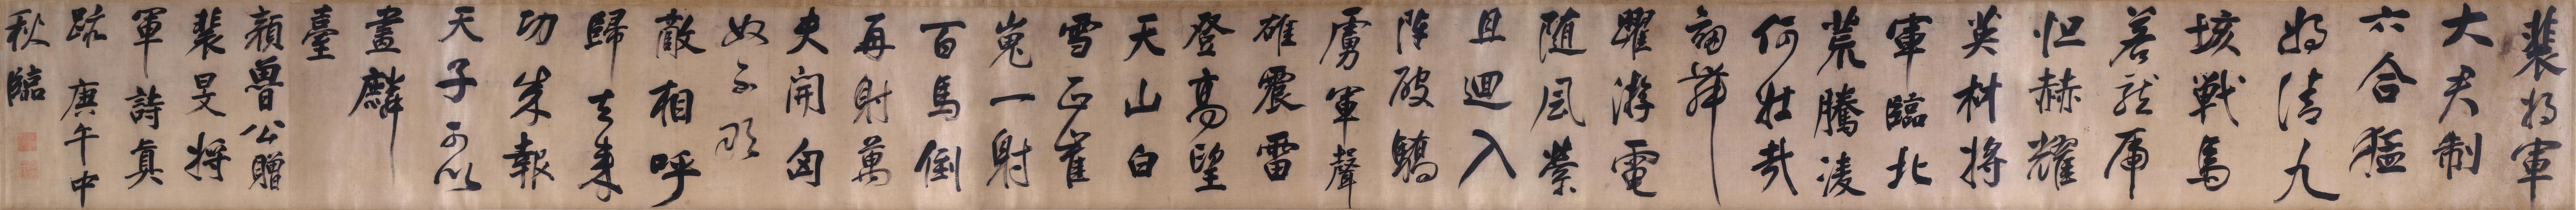 裴将軍
大君制
六合猛
将清九
垓戰馬
若龍虎
怛赫耀
英材将
軍臨北
荒騰凌
何壯哉
劒舞
躍游電
随風縈
且迴入
陣破驕
虜軍聲
雄震雷
登高望
天山白
雪正崔
嵬一射
百馬倒
再射萬
夫開匈
奴不敢
敵相呼
歸去来
功成報
天子可以
畫麟
臺
顏魯公贈
裴旻将
軍詩真
跡 庚午中
秋臨